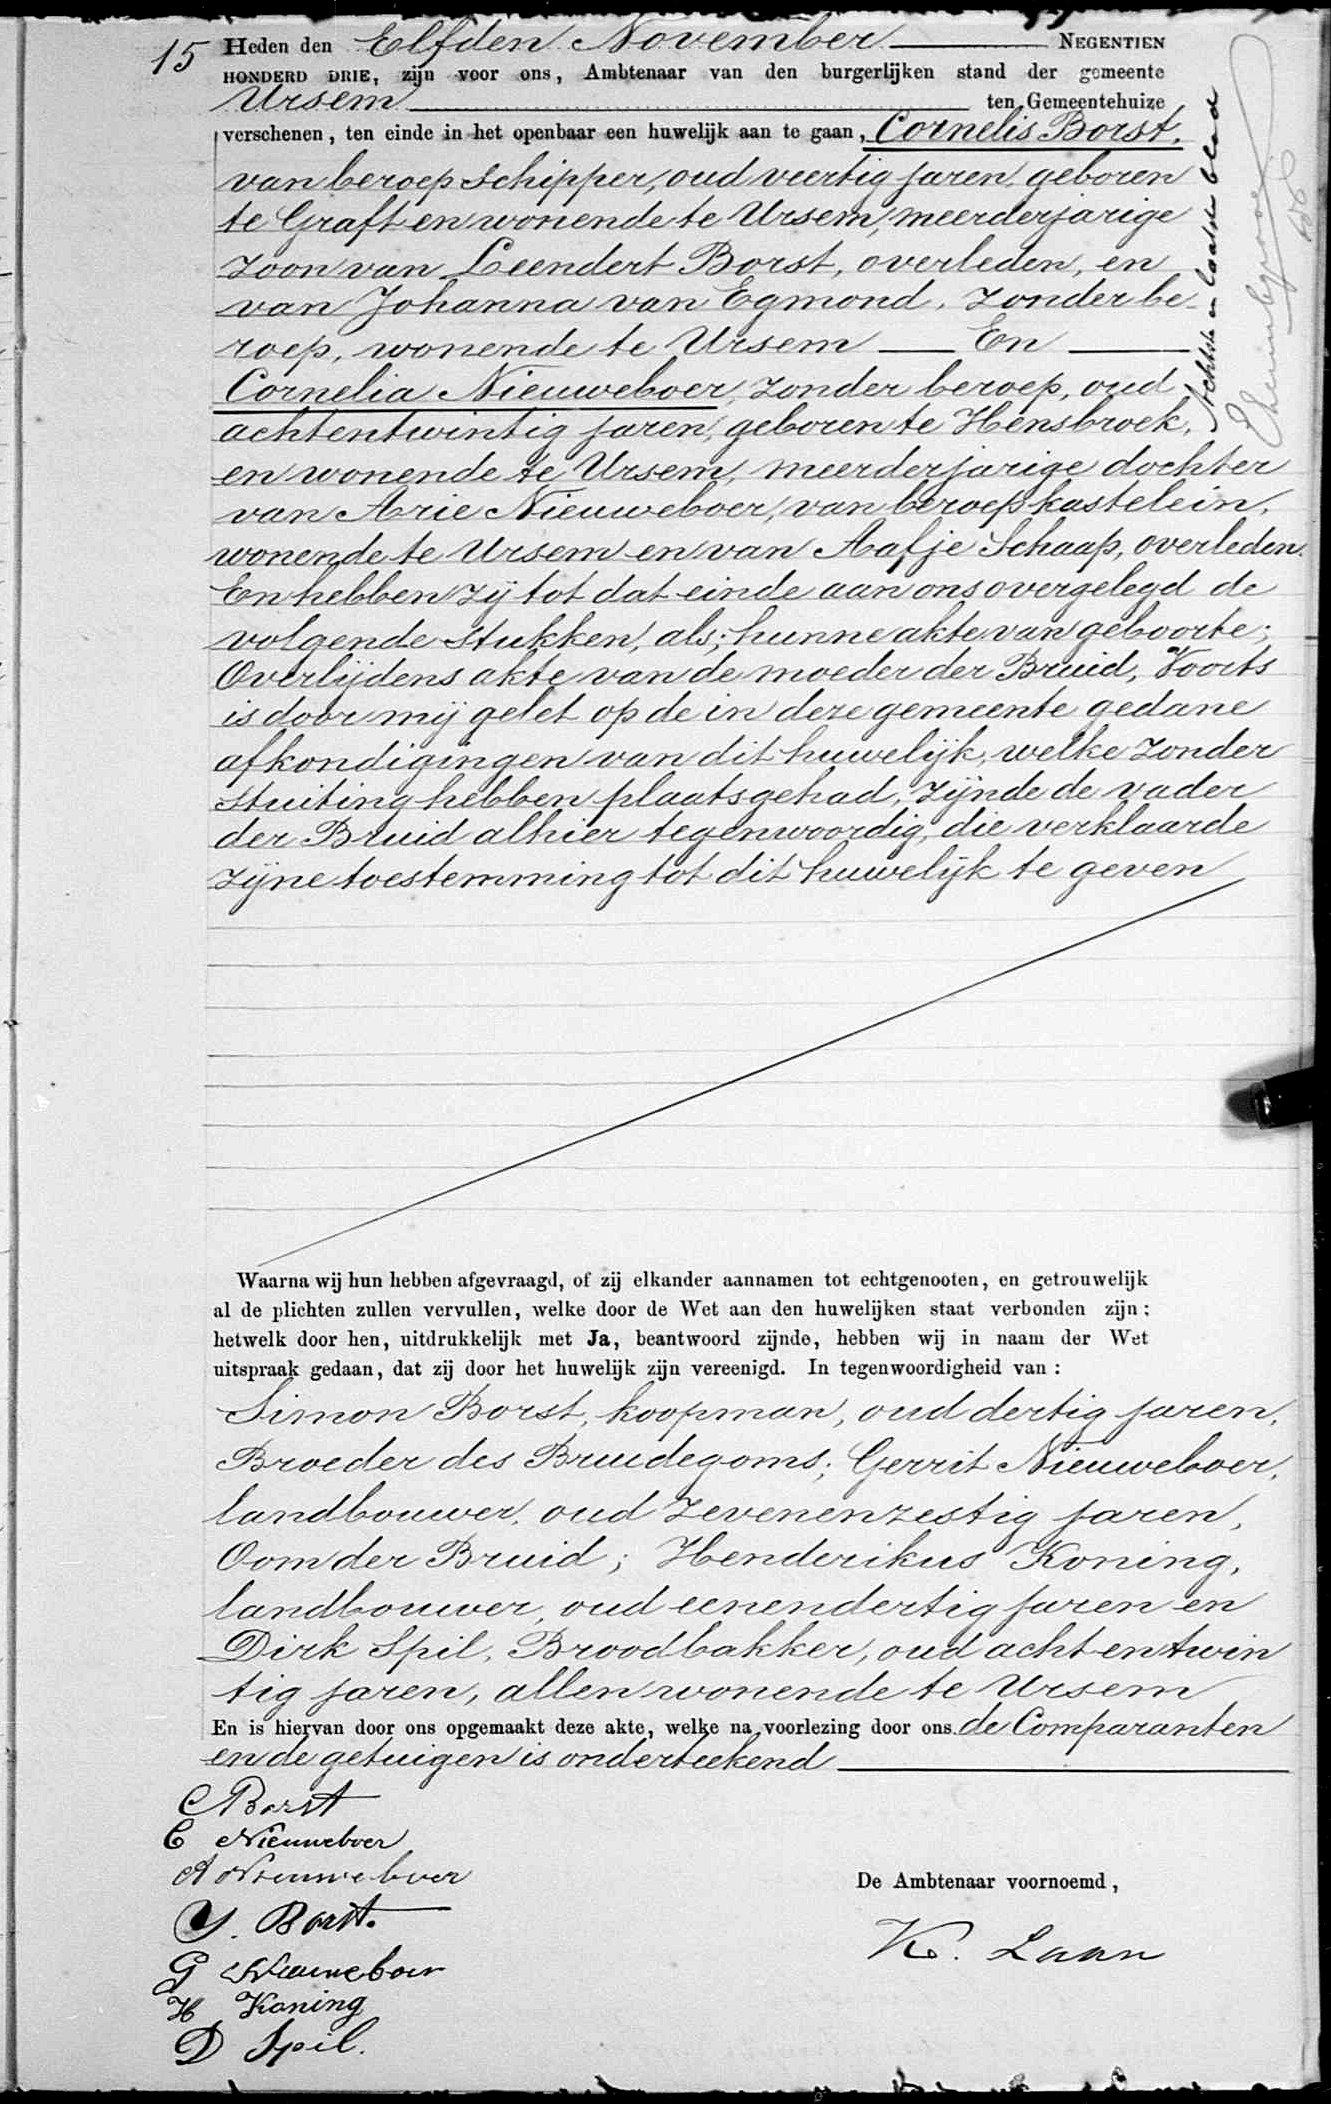 15 Heden den Elfden November NEGENTIEN
HONDERD DRIE, zijn voor ons, Ambtenaar van den burgerlijken stand der gemeente
Ursem ten Gemeentehuize
verschenen, ten einde in het openbaar een huwelijk aan te gaan, Cornelis Borst,
van beroep schipper, oud veertig jaren, geboren
te Graft en wonende te Ursem, meerderjarige
zoon van Leendert Borst, overleden, en
van Johanna van Egmond, zonder be-
roep, wonende te Ursem — En —
Cornelia Nieuweboer, zonder beroep, oud
achtentwintig jaren, geboren te Hensbroek,
en wonende te Ursem, meerderjarige dochter
van Arie Nieuweboer, van beroep kastelein,
wonende te Ursem en van Aafje Schaap, overleden.
En hebben zij tot dat einde aan ons overgelegd de
volgende stukken, als; hunne akte van geboorte;
Overlijdens akte van de moeder der Bruid, Voorts
is door mij gelet op de in deze gemeente gedane
afkondigingen van dit huwelijk, welke zonder
stuiting hebben plaats gehad, zijnde de vader
der Bruid alhier tegenwoordig, die verklaarde
zijne toestemming tot dit huwelijk te geven
Waarna wij hun hebben afgevraagd, of zij elkander aannamen tot echtgenooten, en getrouwelijk
al de plichten zullen vervullen, welke door de Wet aan den huwelijken staat verbonden zijn:
hetwelk door hen, uitdrukkelijk met Ja, beantwoord zijnde, hebben wij in naam der Wet
uitspraak gedaan, dat zij door het huwelijk zijn vereenigd. In tegenwoordigheid van:
Simon Borst, koopman, oud dertig jaren,
Broeder des Bruidegoms; Gerrit Nieuweboer,
landbouwer, oud zevenenzestig jaren,
Oom der Bruid; Henderikus Koning,
landbouwer, oud eenendertig jaren en
Dirk Spil, Broodbakker, oud achtentwin
tig jaren, allen wonende te Ursem
En is hiervan door ons opgemaakt deze akte, welke na voorlezing door ons de Comparanten
en de getuigen is onderteekend
C Borst
C Nieuweboer
A Nieuweboer
S. Borst.
G Nieuweboer
H Koning
D Spil.
De Ambtenaar voornoemd,
K. Laan
Achtste en laatste blad